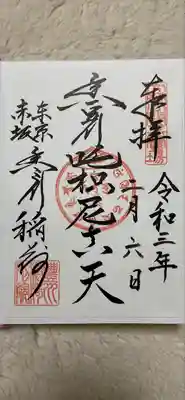 奉拝
令和三年
二月六日
豊川吒枳尼真天
東京
赤坂
豊川稲荷